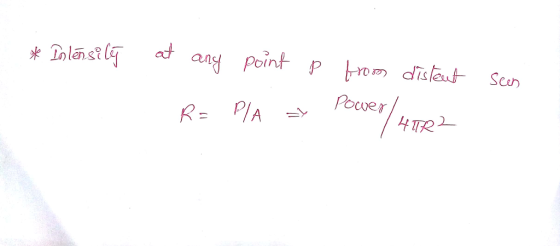 * Intensity at any point p from distent sun
R = P/A => Power/4πR2